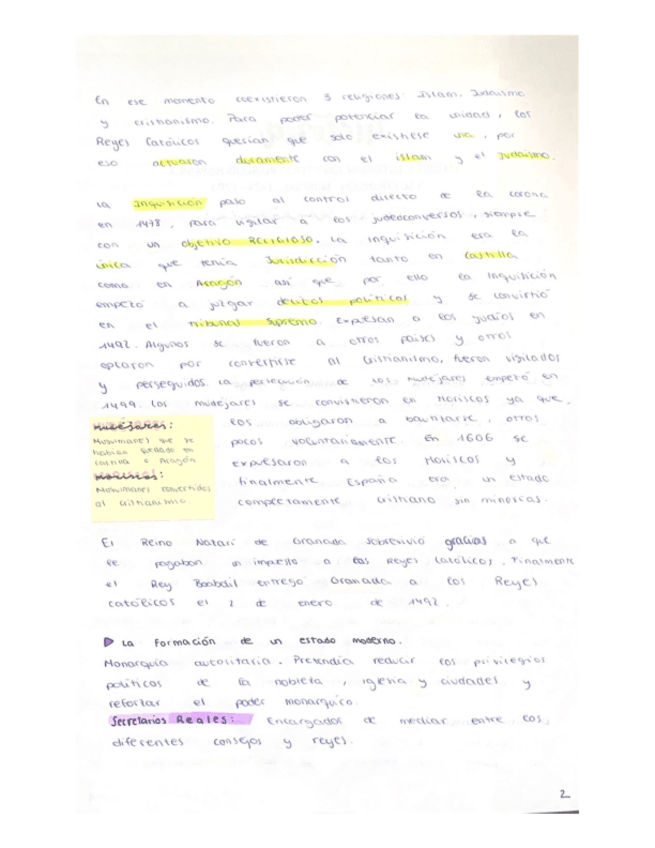 En ese momento coexistieron 3 religiones: Islam, Judaismo
y cristianismo. Para poder potenciar la unidad, los
Reyes Católicos querian que solo existiese una, por
eso actuaron duramente con el islam y el Judaismo.
La Inquisición paso al control directo de la corona
en 1478, para vigilar a los judeoconversos, siempre
con un objetivo RELIGIOSO. La Inquisición era la
única que tenia Jurisdicción tanto en Castilla
como en Aragón asi que por ello la Inquisición
empezó a juzgar delitos políticos y se convirtió
en el Tribunal Supremo. Expulsan a los judíos en
1492. Algunos se fueron a otros paises y otros
optaron por convertirse al Cristianismo, fueron vigilados
y perseguidos. La persecución de los mudejares empezó en
1499. Los mudejares se convirtieron en Moriscos ya que
los obligaron a bautizarse, otros
pocos voluntariamente. En 1606 se
expulsaron a los Moriscos y
finalmente España era un estado
completamente cristiano sin minorias.
Mudéjares:
Musulmanes que se
habian quedado en
Castilla e Aragón
Moriscos:
Musulmanes convertidos
al cristianismo
El Reino Nazarí de Granada sobrevivió gracias a que
se pagaban un impuesto a los Reyes Católicos. Finalmente
el Rey Boabdil entregó Granada a los Reyes
Católicos el 2 de enero de 1492.
La Formación de un estado moderno.
Monarquía autoritaria. Pretendía reducir los privilegios
políticos de la nobleza, iglesia y ciudades y
reforzar el poder monarquico.
Secretarios Reales: Encargados de mediar entre los
diferentes consejos y reyes.
2